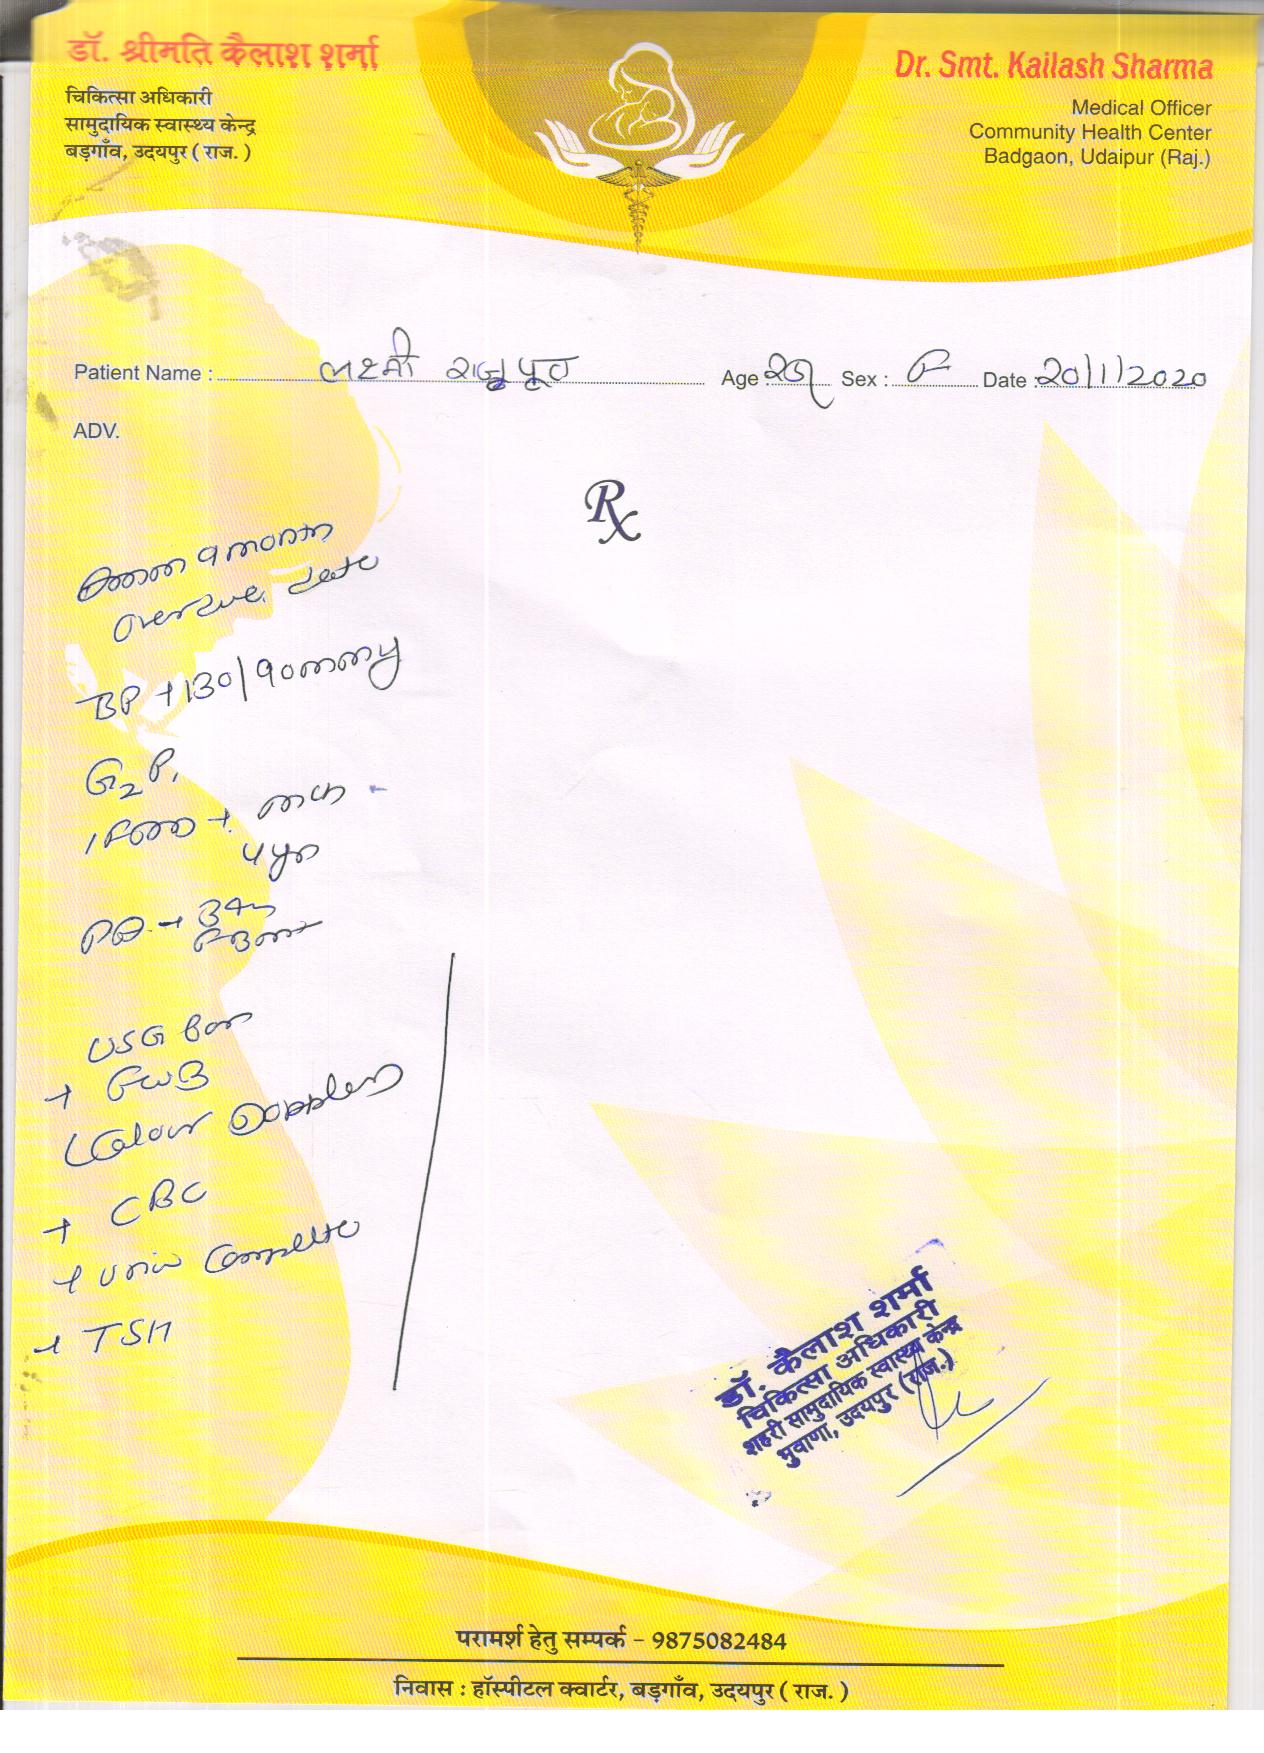 डॉ. श्रीमति कैलाश शर्मा
चिकित्सा अधिकारी
सामुदायिक स्वास्थ्य केन्द्र
बड़गाँव, उदयपुर ( राज. )
Dr. Smt. Kailash Sharma
Medical Officer
Community Health Center
Badgaon, Udaipur (Raj.)
Patient Name : लक्ष्मी राजपूत Age : Sex : F Date : 20/1/2020
ADV.
Rx
9 month
overdue date
BP → 130/90mmHg
G2P1
4 yr
USG for
→ FWB
Colour Doppler
→ CBC
→ Urine Complete
→ TSH
डॉ. कैलाश शर्मा
चिकित्सा अधिकारी
शहरी सामुदायिक स्वास्थ्य केन्द्र
भुवाणा, उदयपुर (राज.)
परामर्श हेतु सम्पर्क - 9875082484
निवास : हॉस्पीटल क्वार्टर, बड़गाँव, उदयपुर ( राज. )